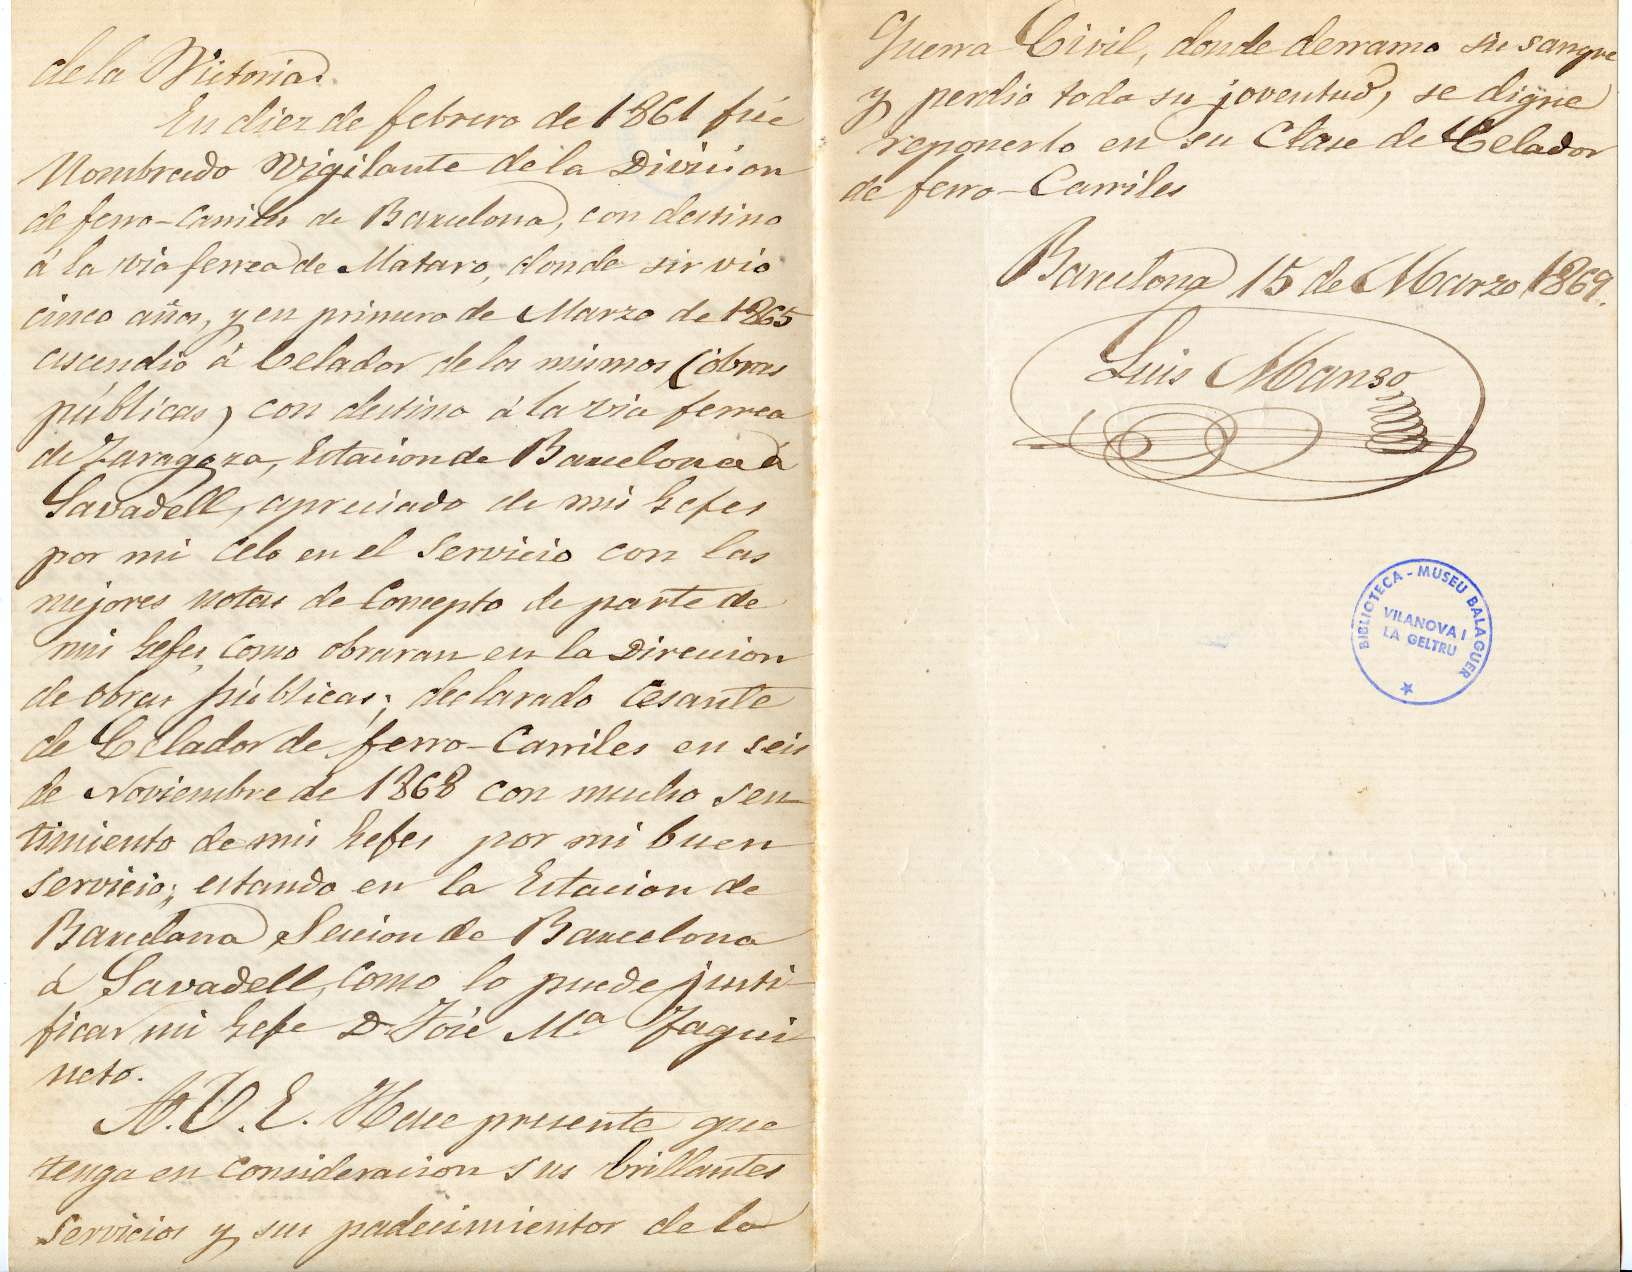 de la Victoria.
En diez de febrero de 1861 fué
Nombrado Vigilante de la Division
de ferro-Carriles de Barcelona, con destino
á la via ferrea de Mataro, donde sirvio
cinco años, y en primero de Marzo de 1865
ascendio á Celador de los mismos (obras
públicas) con destino á la via ferrea
de Zaragoza, Estacion de Barcelona á
Savadell, apreciado de mis hefes
por mi celo en el servicio con las
mejores notas de Concepto de parte de
mis hefes, como obraran en la Direccion
de obras públicas; declarado Cesante
de Celador de ferro-Carriles en seis
de Noviembre de 1868 con mucho sen-
timiento de mis hefes por mi buen
servicio; estando en la Estacion de
Barcelona, Seccion de Barcelona
á Savadell, como lo puede justi-
ficar mi hefe Dn José Ma Jaqui
neto.
A. V. E. Hace presente que
tenga en consideracion sus brillantes
servicios y sus padecimientos de la
Guerra Civil, donde derramo su sangre
y perdio toda su joventud, se digne
reponerlo en su Clase de Celador
de ferro-Carriles
Barcelona 15 de Marzo 1869.
Luis Manso
BIBLIOTECA - MUSEU BALAGUER
VILANOVA I
LA GELTRU